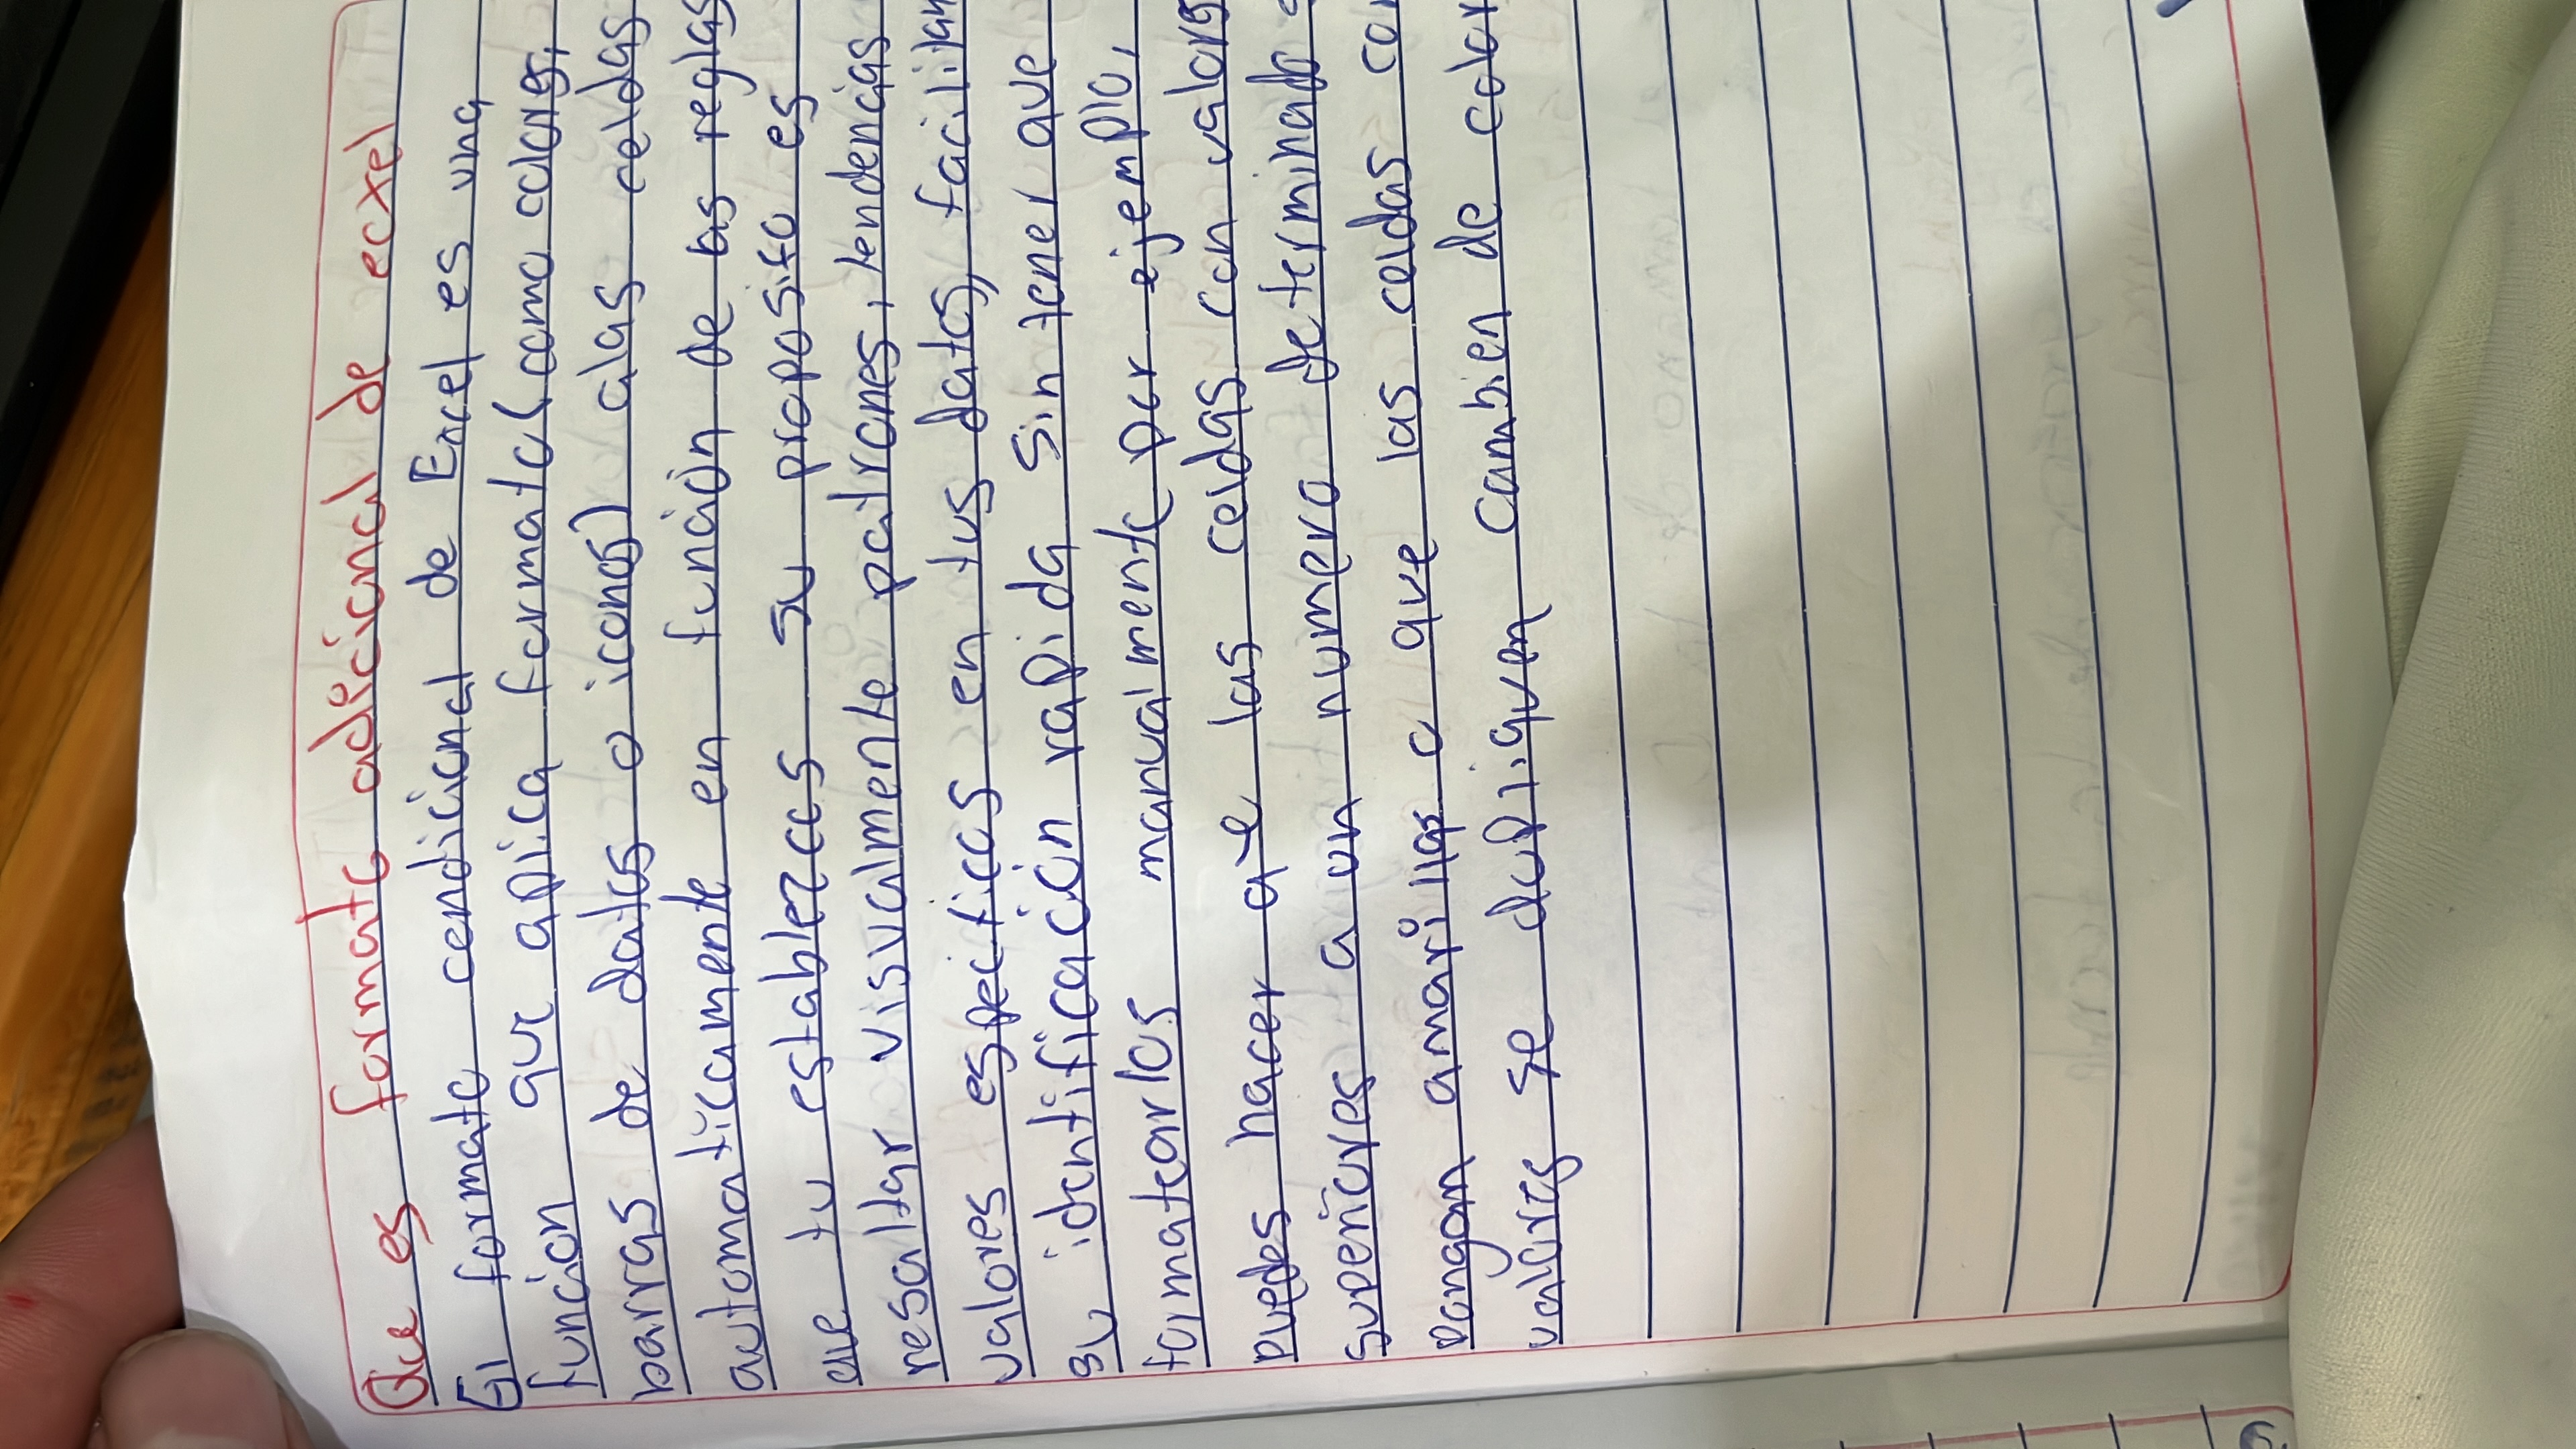 Que es formato adicional de ecxel
El formato condicional de Excel es una
función que aplica formato (como colores,
barras de datos o iconos) alas celdas
automaticamente en función de las reglas
que tu estableces su proposito es
resaltar visualmente patrones, tendencias
valores especificos en tus datos, facilitan
su identificación rapida sin tener que
formatearlos manualmente por ejemplo,
puedes hacer que las celdas con valores
superiores a un numero determinado se
pongan amarillas o que las celdas con
valores se dupliquen cambien de color